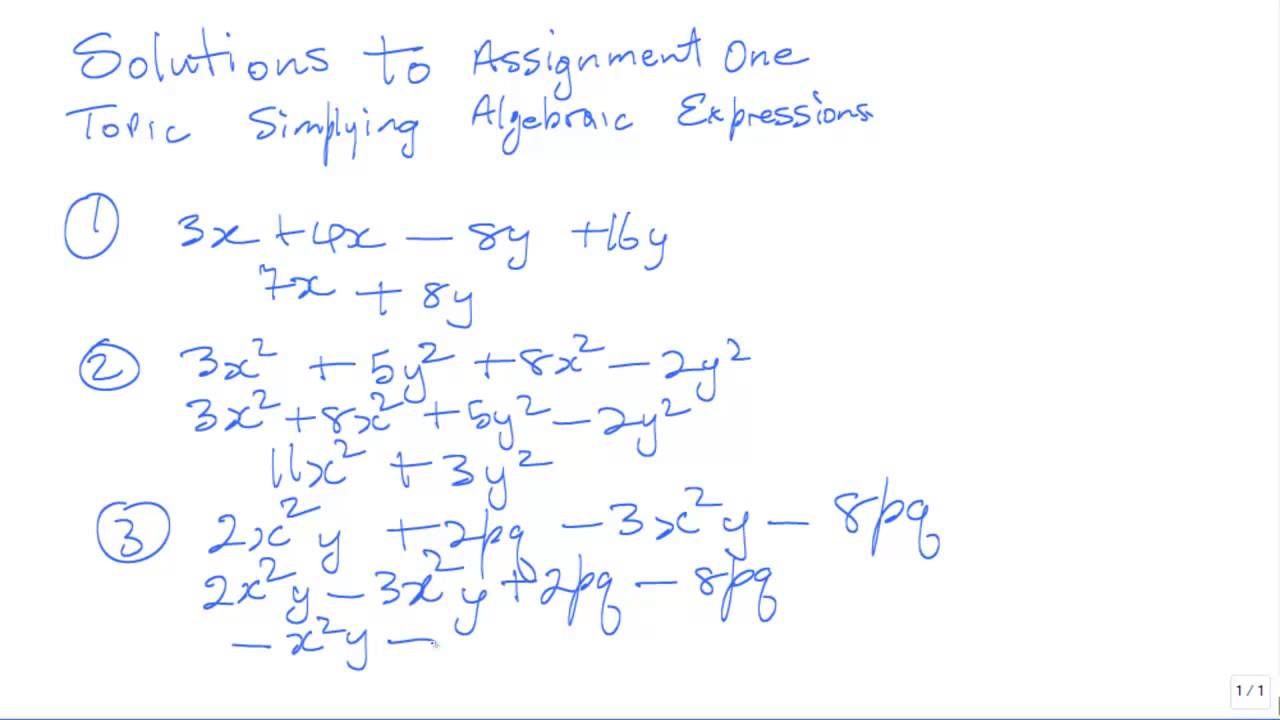 Solutions to Assignment One
Topic Simplying Algebraic Expressions
① 3x + 4x - 8y + 16y
7x + 8y
② 3x² + 5y² + 8x² - 2y²
3x² + 8x² + 5y² - 2y²
11x² + 3y²
③ 2x²y + 2pq - 3x²y - 8pq
2x²y - 3x²y + 2pq - 8pq
- x²y -
1 / 1